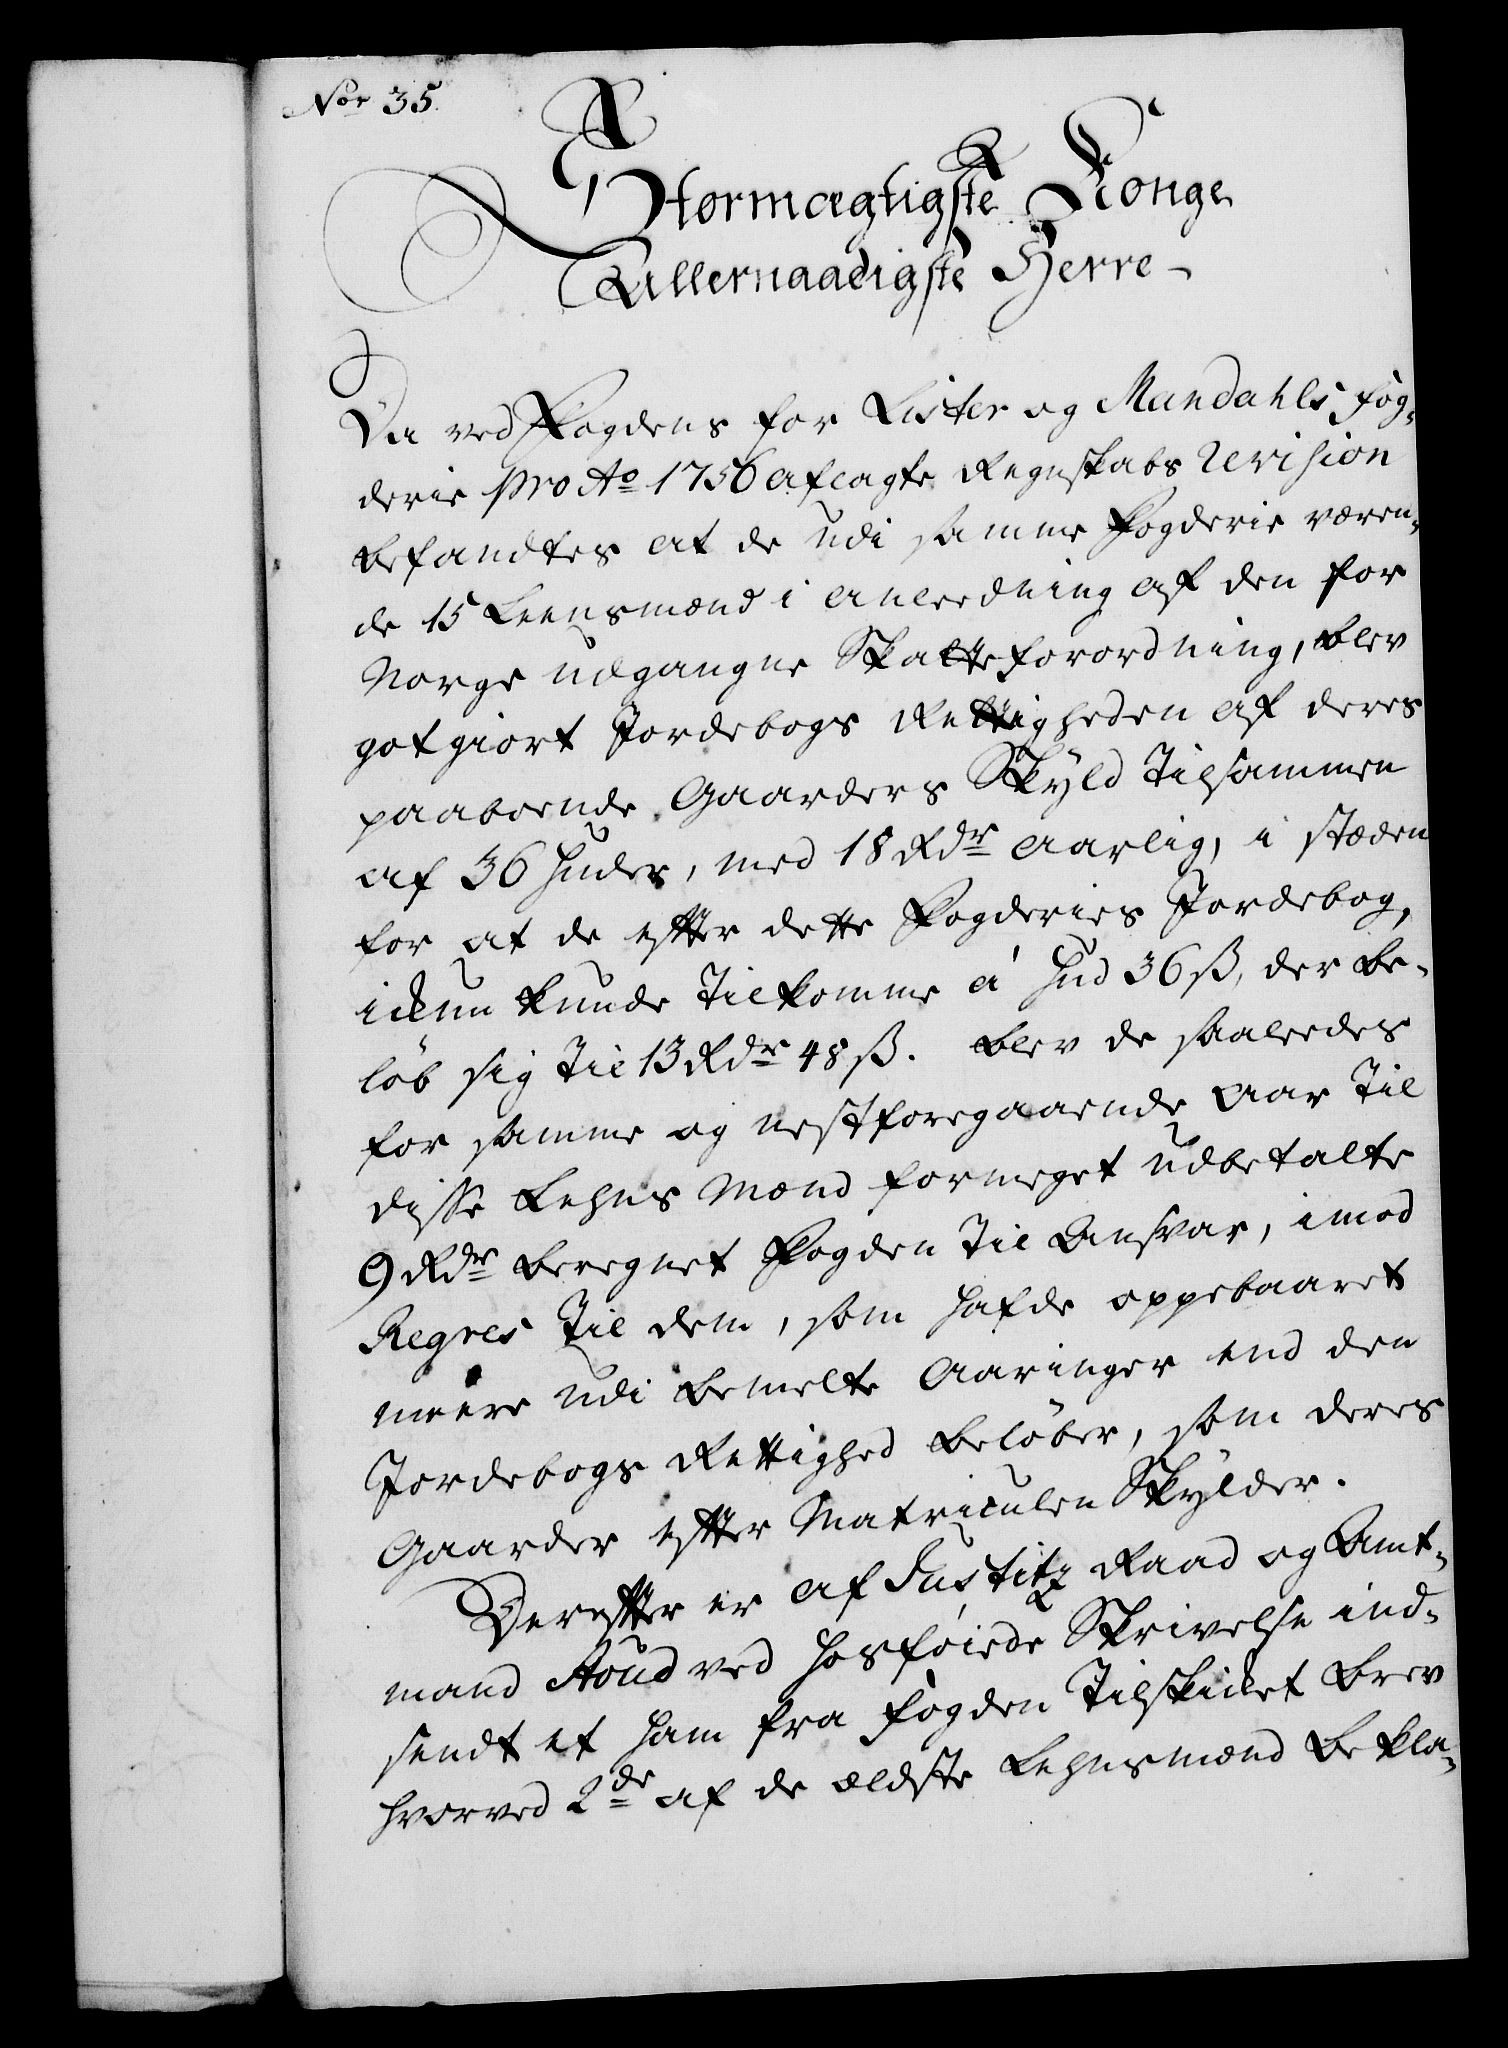 Nor 35.
Stormægtigste Konge
Allernaadigste Herre
Da ved Fogdens for Lister og Mandahls fog-
derie pro Ao 1756 aflagte Regnskabs Revision
befandtes at de udi samme Fogderie væren-
de 15 Leensmænd i anleedning af den for
Norge udgangne Skatteforordning, blev
gotgiort Jordebogs Rettigheden af deres
paaboende Gaarders Skyld tilsammen
af 36 huder, med 18 Rdr aarlig, i stæden
for at de efter dette Fogderies Jordebog,
ickun kunde tilkomme á hud 36 ß, der be-
løb sig til 13 Rdr 48 ß. blev de saaledes
for samme og nestforegaaende Aar til
disse Lehns Mænd formeget udbetalte
9 Rdr beregnet Fogden til Ansvar, imod
Regres til dem, som hafde oppebaaret
meere udi bemelte Aaringer end den
Jordebogs Rettighed beløber, som deres
Gaarder efter Matriculen Skylder.
Derefter er af Justitz Raad og Amt-
mand Stoud ved hosføiede Skrivelse ind-
sendt et ham fra fogden tilskicket brev
hvorved 2de af de ældste Lehnsmænd bekla-